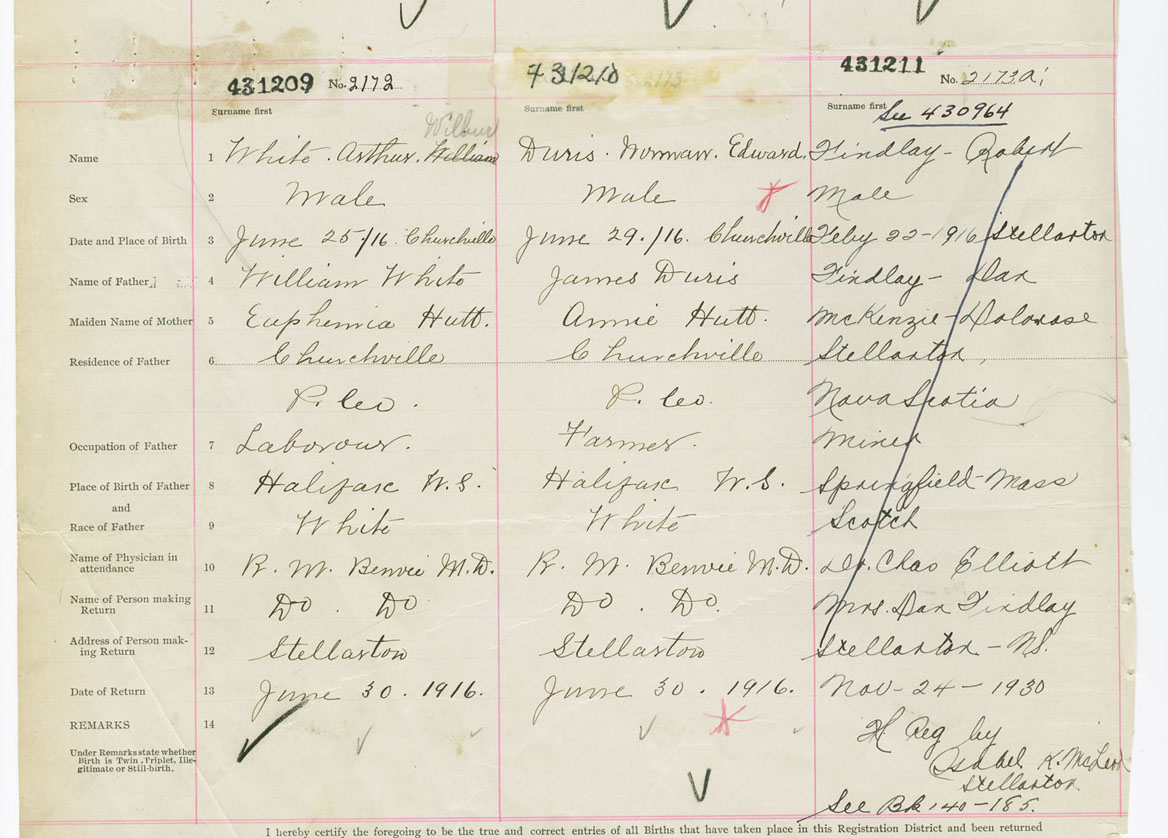 431209 No. 2172 431210 2173 431211 No. 2173a
Surname first Surname first Surname first See 430964
Wilbur
Name 1 White. Arthur. William Duris. Norman. Edward. Findlay - Robert
Sex 2 Male Male Male
Date and Place of Birth 3 June 25/16 Churchville June 29./16. Churchville Feby 22-1916 Stellarton
Name of Father 4 William White James Duris Findlay - Dan
Maiden Name of Mother 5 Euphemia Hutt. Annie Hutt. McKenzie -
Residence of Father 6 Churchville Churchville Stellarton,
P. Co. P. Co. Nova Scotia
Occupation of Father 7 Labourour. Farmer. Miner
Place of Birth of Father 8 Halifax N.S. Halifax N.S. Springfield-Mass
and
Race of Father 9 White White Scotch
Name of Physician in attendance 10 R. M. Benvie M.D. R. M. Benvie M.D. Dr. Chas Elliott
Name of Person making Return 11 Do. Do Do. Do. Mrs. Dan Findlay
Address of Person making Return 12 Stellarton Stellarton Stellarton - NS.
Date of Return 13 June 30. 1916. June 30. 1916. Nov-24-1930
REMARKS 14 Reg by
Under Remarks state whether
Birth is Twin, Triplet, Ille-
gitimate or Still-birth.
Isabel K. McLeod
Stellarton
See Bk 140-185.
I hereby certify the foregoing to be the true and correct entries of all Births that have taken place in this Registration District and been returned